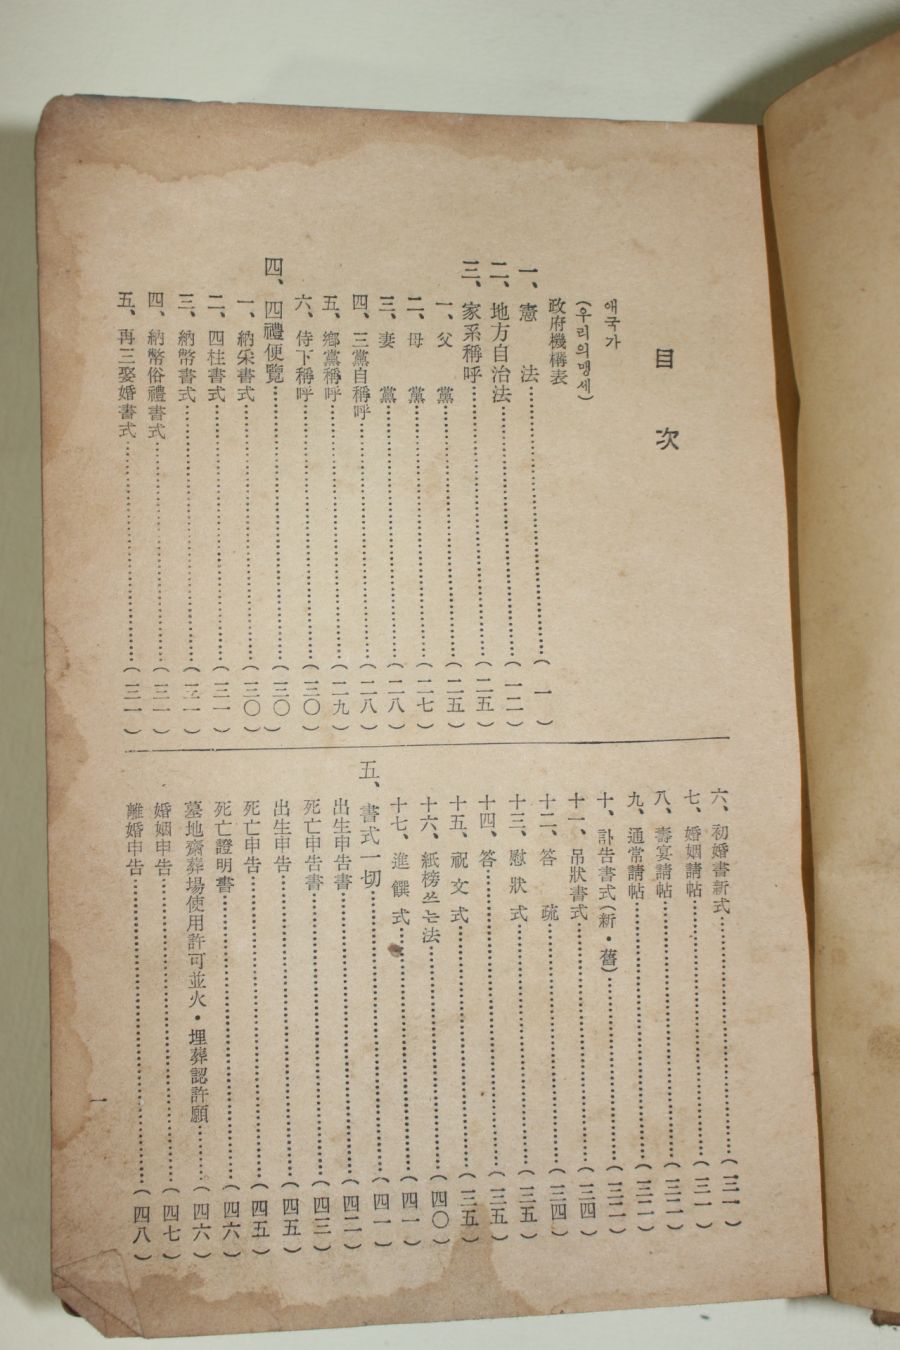 目次
애국가
(우리의맹세)
政府機構表
一、憲法………(一)
二、地方自治法………(一二)
三、家系稱呼………(二五)
一、父黨………(二五)
二、母黨………(二七)
三、妻黨………(二八)
四、三黨自稱呼………(二八)
五、鄕黨稱呼………(二九)
六、侍下稱呼………(三〇)
四、四禮便覽………(三〇)
一、納采書式………(三〇)
二、四柱書式………(三一)
三、納幣書式………(三一)
四、納幣俗禮書式………(三一)
五、再三娶婚書式………(三一)
六、初婚書新式………(三一)
七、婚姻請帖………(三一)
八、壽宴請帖………(三二)
九、通常請帖………(三二)
十、訃告書式(新・舊)………(三二)
十一、吊狀書式………(三四)
十二、答疏………(三四)
十三、慰狀式………(三五)
十四、答………(三五)
十五、祝文式………(三五)
十六、紙榜쓰는法………(四〇)
十七、進饌式………(四一)
五、書式一切………(四一)
出生申告書………(四二)
死亡申告書………(四三)
出生申告………(四五)
死亡申告………(四五)
死亡證明書………(四六)
墓地齋葬場使用許可並火・埋葬認許願………(四六)
婚姻申告………(四七)
離婚申告………(四八)
一